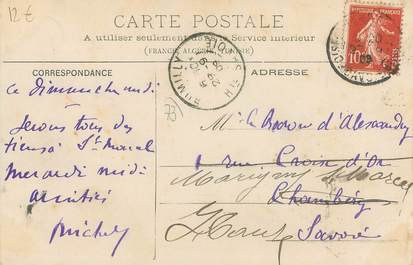 12€
CARTE POSTALE
A utiliser seulement dans le Service intérieur
(FRANCE, ALGERIE, TUNISIE)
CORRESPONDANCE
ADRESSE
REPUBLIQUE FRANÇAISE
10
RUMILLY
ce Dimanche midi
Serons tous
à St Marcel
mercredi midi
amitiés
Michel
le Baron d'Alexandry
1 rue Croix d'Or
Marigny St Marcel
Chambéry
Haute Savoie